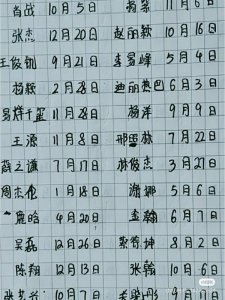 肖战 10月5日
张杰 12月20日 赵丽颖 10月16日
王俊凯 9月21日 李易峰 5月4日
杨颖 2月28日 迪丽热巴 6月3日
易烊千玺 11月28日 杨洋 9月9日
王源 11月8日 邢昭林 7月22日
薛之谦 7月17日 林俊杰 3月27日
周杰伦 1月18日 谢娜 5月6日
鹿晗 4月20日 6月7日
吴磊 12月26日 蔡徐坤 8月2日
陈翔 12月13日 张翰 10月6日